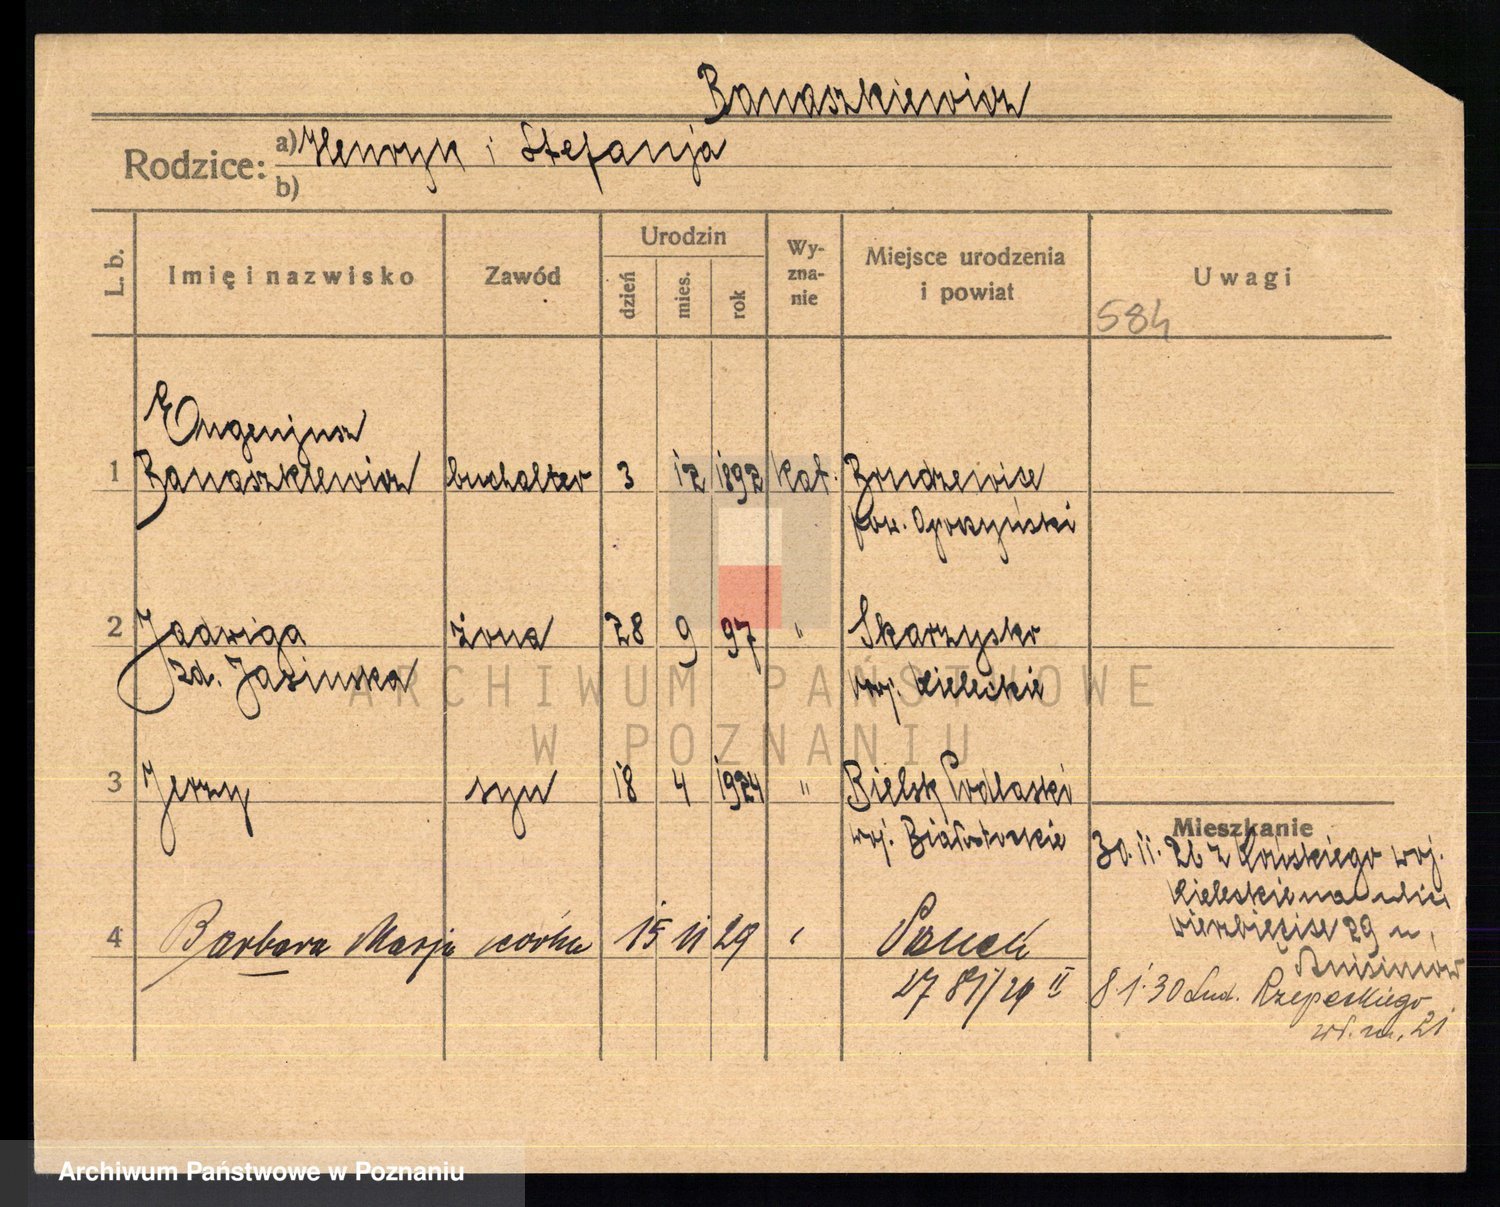 Banaszkiewicz
Rodzice: a) Henryk i Stefanja
b)
L. b.
Imię i nazwisko
Zawód
Urodzin
dzień
mies.
rok
Wy-
zna-
nie
Miejsce urodzenia
i powiat
Uwagi
584
Eugenjusz
1 Banaszkiewicz buchalter 3 12 1892 kat.
pow. Opoczyński
2 Jadwiga żona 28 9 97 " Skarzysko
zd. Jasinska woj. Kieleckie
3 Jerzy syn 18 4 1924 " Bielsk Podlaski
woj. Białostockie
Mieszkanie
30.11.26 z Końskiego woj.
Kieleckie na ulicę
Wierzbięcice 29 u
4 Barbara Marja córka 15 11 29
8 1 30 Lud. Rzepeckiego
21
ARCHIWUM PAŃSTWOWE
W POZNANIU
Archiwum Państwowe w Poznaniu